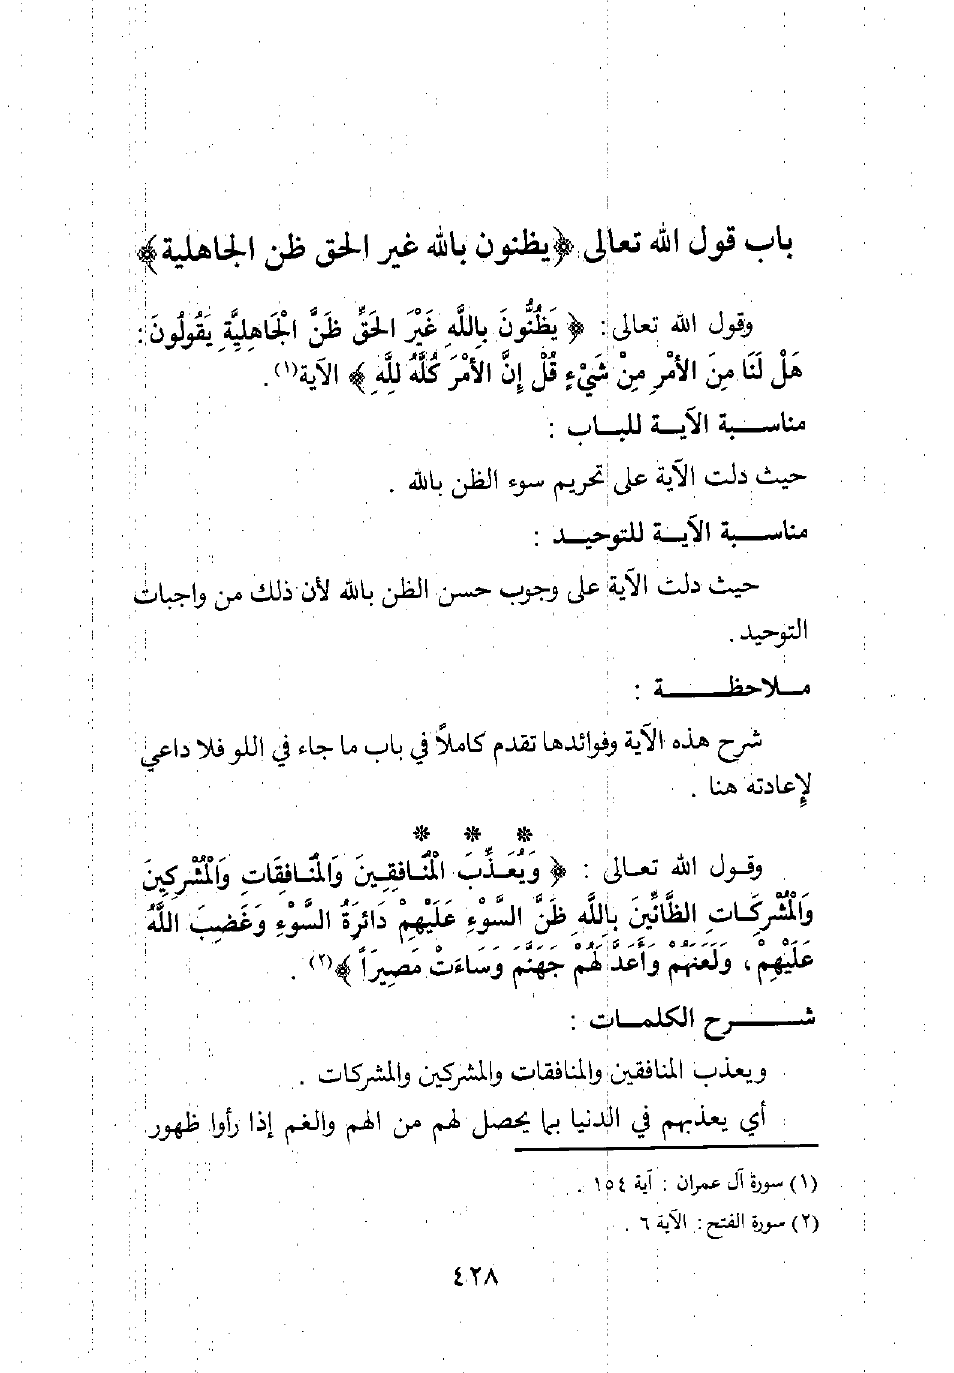 باب قول الله تعالى ﴿يظنون بالله غير الحق ظن الجاهلية﴾
وقول الله تعالى: ﴿ يَظُنُّونَ بِاللَّهِ غَيْرَ الحَقِّ ظَنَّ الْجَاهِلِيَّةِ يَقُولُونَ:
هَلْ لَنَا مِنَ الأمْرِ مِنْ شَيْءٍ قُلْ إِنَّ الأمْرَ كُلَّهُ للَّهِ ﴾ الآية(١).
مناسبة الآية للباب :
حيث دلت الآية على تحريم سوء الظن بالله .
مناسبة الآية للتوحيد :
حيث دلت الآية على وجوب حسن الظن بالله لأن ذلك من واجبات
التوحيد .
ملاحظة :
شرح هذه الآية وفوائدها تقدم كاملاً في باب ما جاء في اللو فلا داعي
لإعادته هنا .
❊ ❊ ❊
وقول الله تعالى : ﴿ وَيُعَذِّبَ الْمُنَافِقِينَ وَالْمُنَافِقَاتِ وَالْمُشْرِكِينَ
وَالْمُشْرِكَاتِ الظَّانِّينَ بِاللَّهِ ظَنَّ السَّوْءِ عَلَيْهِمْ دَائِرَةُ السَّوْءِ وَغَضِبَ اللَّهُ
عَلَيْهِمْ، وَلَعَنَهُمْ وَأَعَدَّ لَهُمْ جَهَنَّمَ وَسَاءَتْ مَصِيرَاً ﴾(٢) .
شرح الكلمات :
ويعذب المنافقين والمنافقات والمشركين والمشركات .
أي يعذبهم في الدنيا بما يحصل لهم من الهم والغم إذا رأوا ظهور
(١) سورة آل عمران : آية ١٥٤ .
(٢) سورة الفتح : الآية ٦ .
٤٢٨